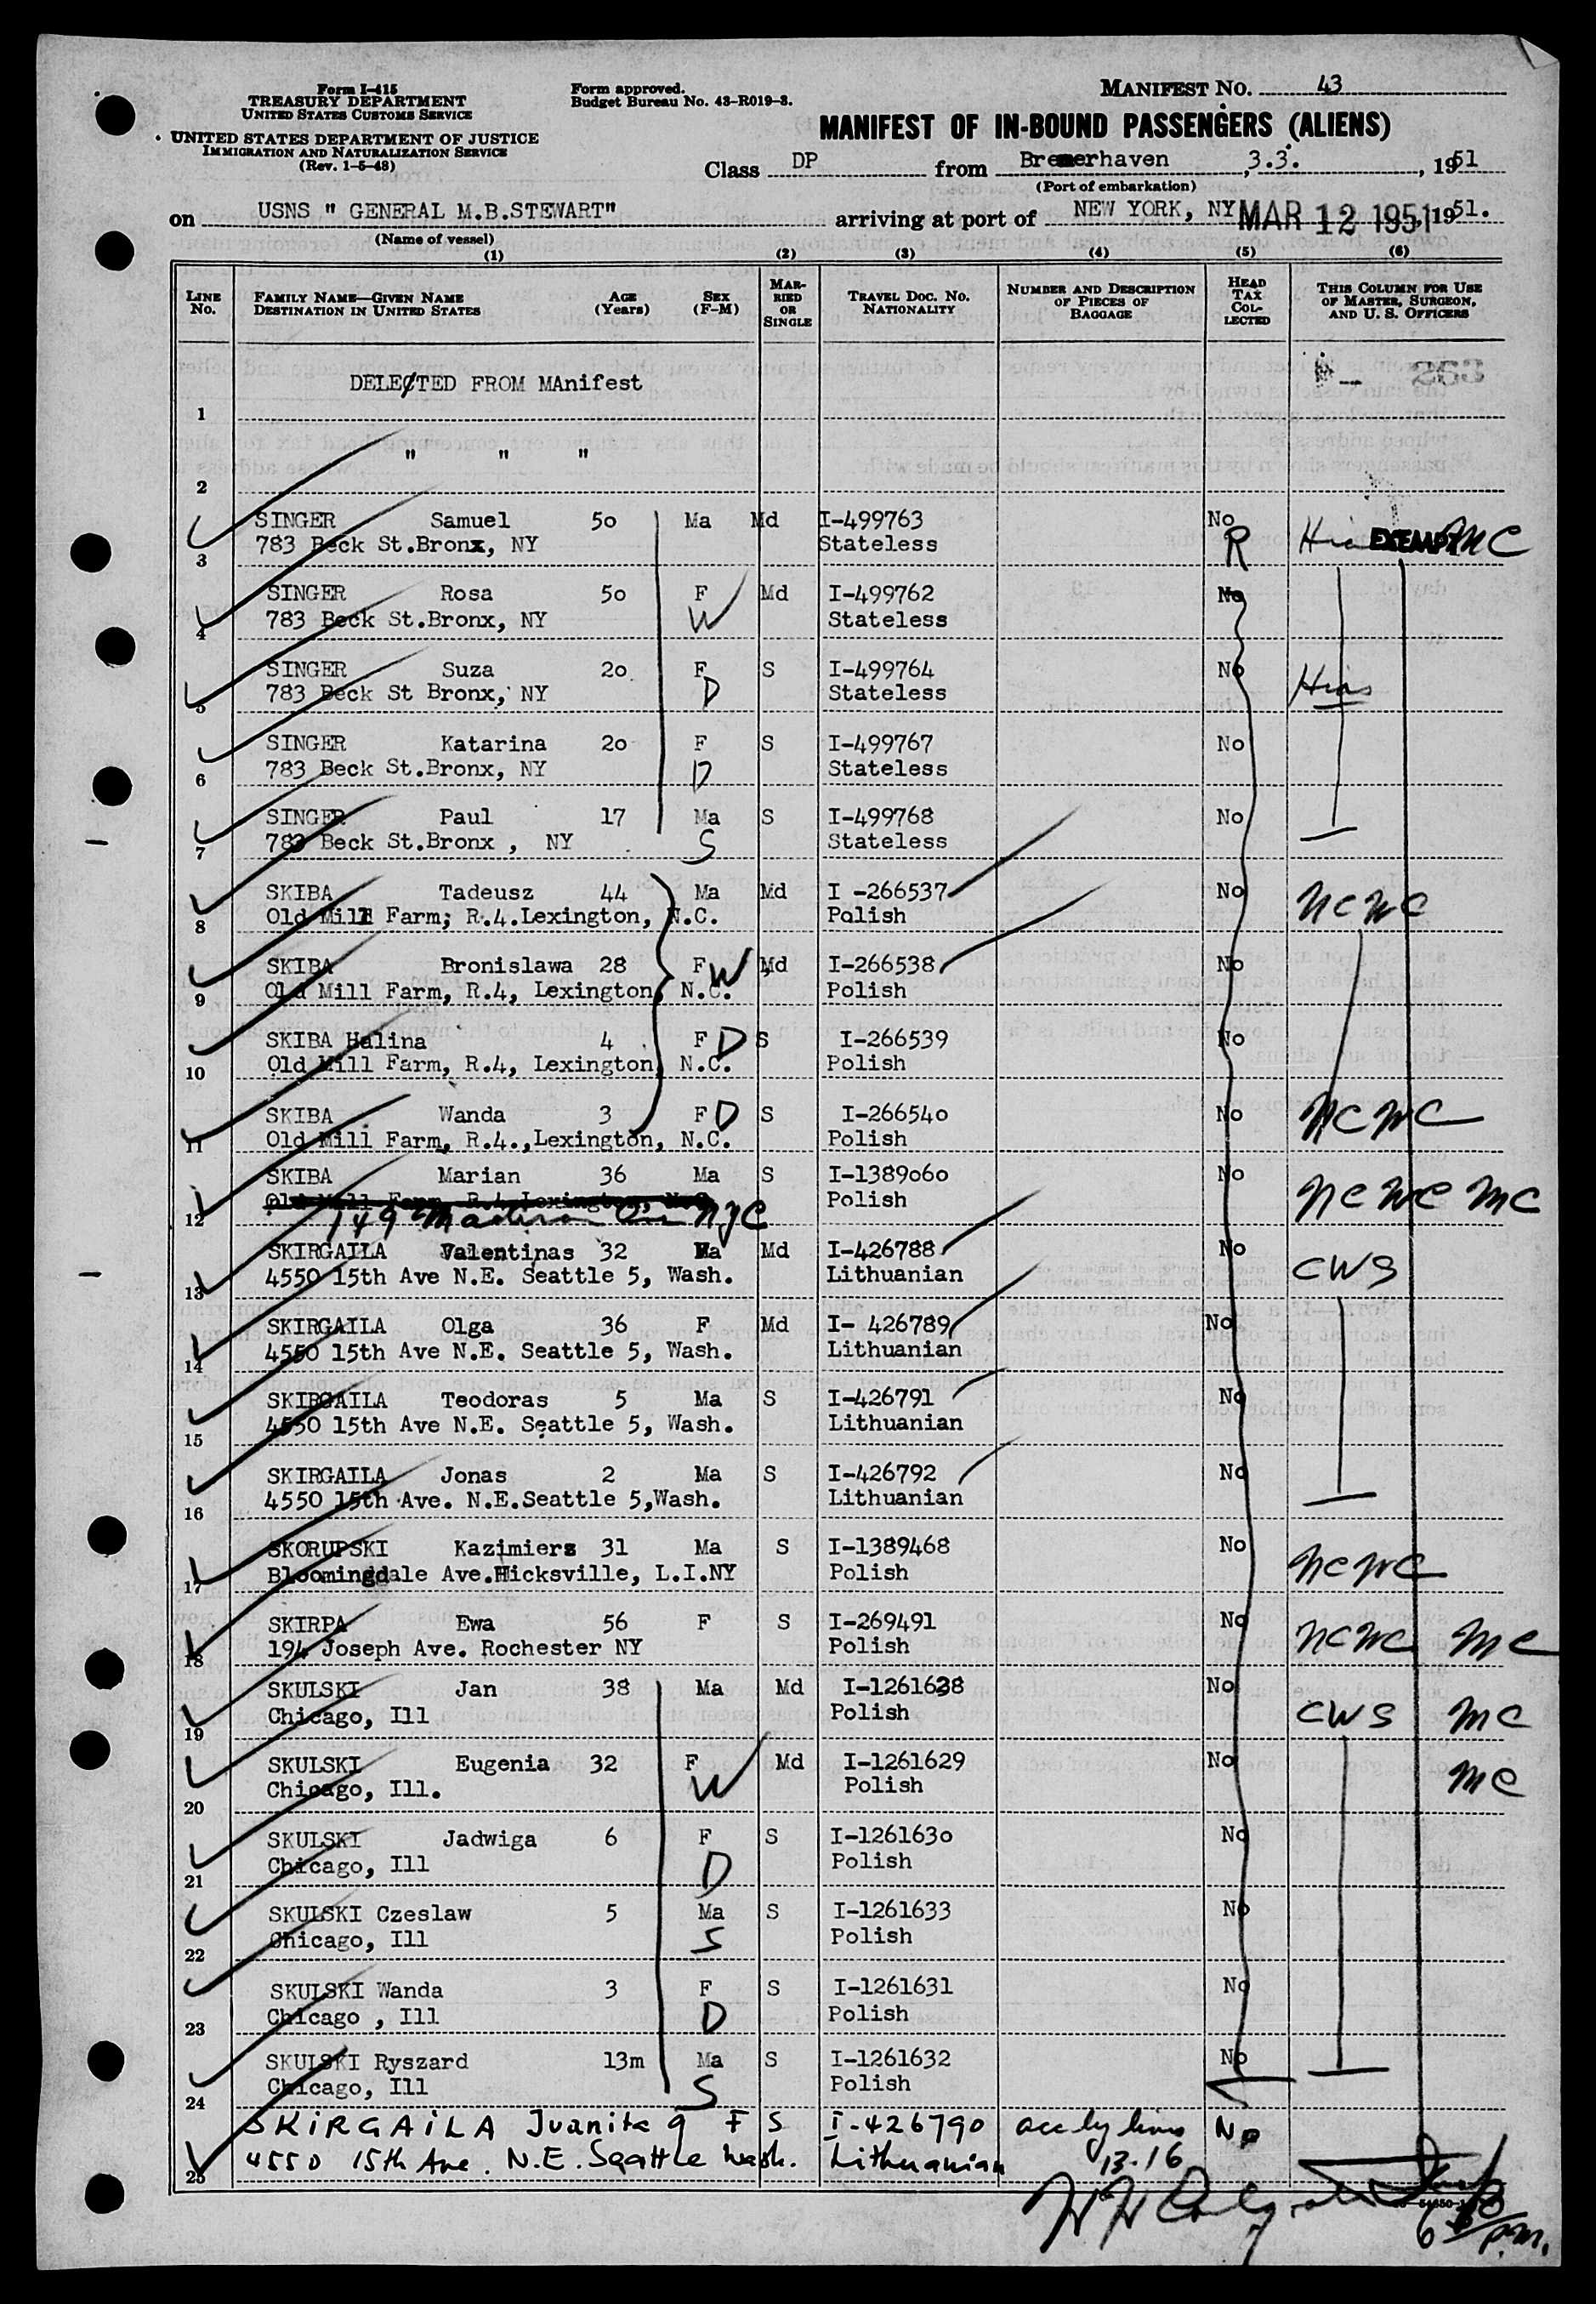 Form I-415
TREASURY DEPARTMENT
UNITED STATES CUSTOMS SERVICE
UNITED STATES DEPARTMENT OF JUSTICE
IMMIGRATION AND NATURALIZATION SERVICE
(Rev. 1-5-48)
Form approved.
Budget Bureau No. 43-R019-3.
MANIFEST NO. 43
MANIFEST OF IN-BOUND PASSENGERS (ALIENS)
Class DP from Bremerhaven, 3.3., 1951
(Port of embarkation)
on USNS " GENERAL M.B.STEWART" arriving at port of NEW YORK, NY MAR 12 1951, 1951.
(Name of vessel)
(1) (2) (3) (4) (5) (6)
LINE No. FAMILY NAME—GIVEN NAME DESTINATION IN UNITED STATES AGE (Years) SEX (F-M) MARRIED OR SINGLE TRAVEL DOC. NO. NATIONALITY NUMBER AND DESCRIPTION OF PIECES OF BAGGAGE HEAD TAX COLLECTED THIS COLUMN FOR USE OF MASTER, SURGEON, AND U. S. OFFICERS
DELECTED FROM MAnifest 263
1
" " "
2
SINGER Samuel 50 Ma Md I-499763 No
783 Beck St.Bronx, NY Stateless R Hias EXEMPT MC
3
SINGER Rosa 50 F Md I-499762 No
4 783 Beck St.Bronx, NY W Stateless
SINGER Suza 20 F S I-499764 No
5 783 Beck St Bronx, NY D Stateless Hias
SINGER Katarina 20 F S I-499767 No
6 783 Beck St.Bronx, NY D Stateless
SINGER Paul 17 Ma S I-499768 No
7 783 Beck St.Bronx , NY S Stateless
SKIBA Tadeusz 44 Ma Md I -266537 No
8 Old Mill Farm; R.4.Lexington, N.C. Polish NCWC
SKIBA Bronislawa 28 F W Md I-266538 No
9 Old Mill Farm, R.4, Lexington, N.C. Polish
SKIBA Halina 4 F D S I-266539 No
10 Old Mill Farm, R.4, Lexington, N.C. Polish
SKIBA Wanda 3 F D S I-266540 No NCWC
11 Old Mill Farm, R.4.,Lexington, N.C. Polish
SKIBA Marian 36 Ma S I-1389060 No
Old Mill Farm, R.4 Lexington, N.C. Polish NCWC MC
12 149 Madison Ave NYC
SKIRGAILA Valentinas 32 Ma Md I-426788 No
13 4550 15th Ave N.E. Seattle 5, Wash. Lithuanian CWS
SKIRGAILA Olga 36 F Md I- 426789 No
14 4550 15th Ave N.E. Seattle 5, Wash. Lithuanian
SKIRGAILA Teodoras 5 Ma S I-426791 No
15 4550 15th Ave N.E. Seattle 5, Wash. Lithuanian
SKIRGAILA Jonas 2 Ma S I-426792 No
16 4550 15th Ave. N.E.Seattle 5,Wash. Lithuanian
SKORUPSKI Kazimiers 31 Ma S I-1389468 No
17 Bloomingdale Ave.Hicksville, L.I.NY Polish NCWC
SKIRPA Ewa 56 F S I-269491 No
18 194 Joseph Ave. Rochester NY Polish NCWC MC
SKULSKI Jan 38 Ma Md I-1261628 No
19 Chicago, Ill Polish CWS MC
SKULSKI Eugenia 32 F Md I-1261629 No
20 Chicago, Ill. W Polish MC
SKULSKI Jadwiga 6 F S I-1261630 No
21 Chicago, Ill D Polish
SKULSKI Czeslaw 5 Ma S I-1261633 No
22 Chicago, Ill S Polish
SKULSKI Wanda 3 F S I-1261631 No
23 Chicago , Ill D Polish
SKULSKI Ryszard 13m Ma S I-1261632 No
24 Chicago, Ill S Polish
SKIRGAILA Juanita 9 F S I-426790 acc by lines No
25 4550 15th Ave. N.E. Seattle Wash. Lithuanian 13-16
6 30 P.M.